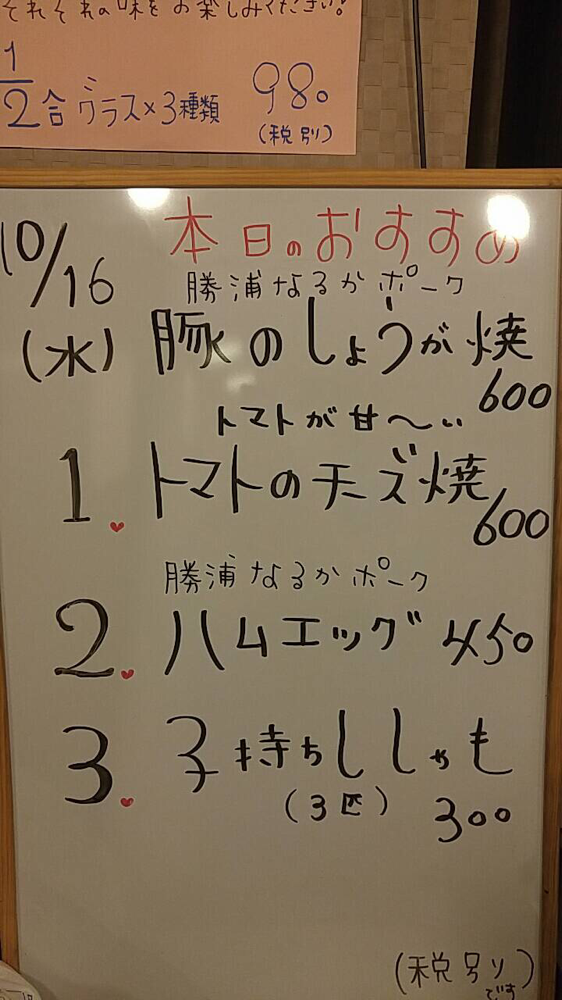 それぞれの味をお楽しみください!
1/2合グラス×3種類 980
(税別)
10/16
(水)
本日のおすすめ
勝浦なるかポーク
豚のしょうが焼
600
トマトが甘〜い
1. トマトのチーズ焼
600
勝浦なるかポーク
2. ハムエッグ 450
3. 子持ちししゃも
(3匹) 300
(税別)
です